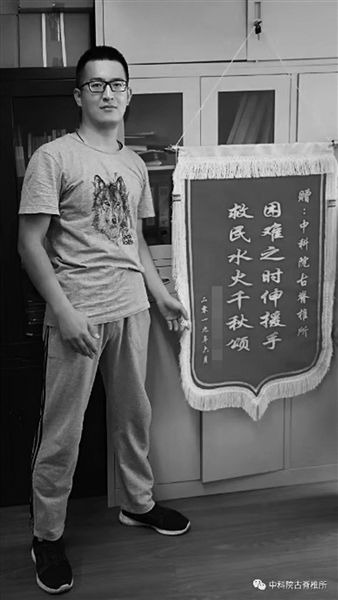 赠：中科院古脊椎所
困难之时伸援手
救民水火千秋颂
二零一九年六月
中科院古脊椎所